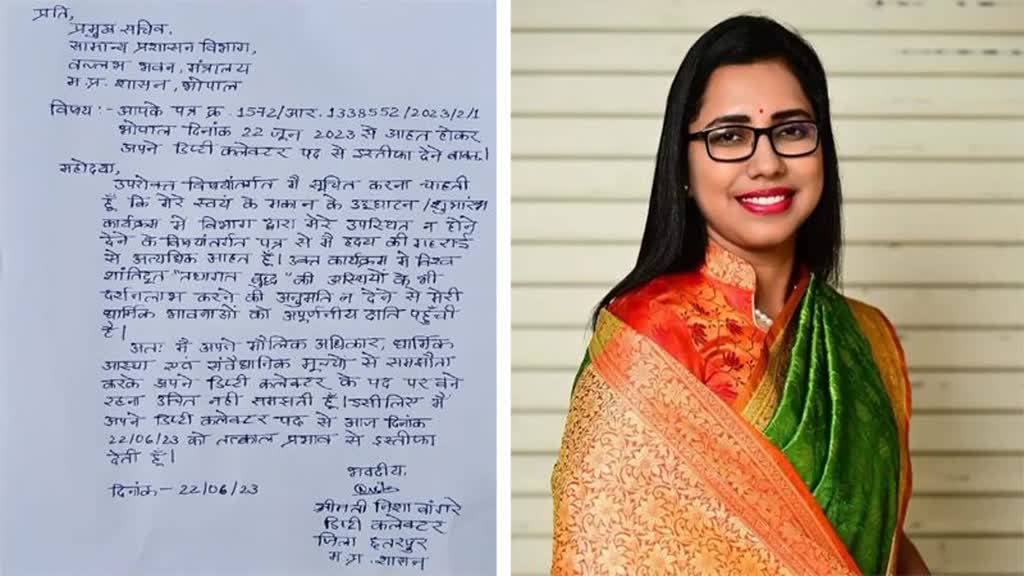 प्रति,
प्रमुख सचिव,
सामान्य प्रशासन विभाग,
वल्लभ भवन, मंत्रालय
म.प्र. शासन, भोपाल
विषय :- आपके पत्र क्र. 1572/आर. 1338552/2023/2/1
भोपाल दिनांक 22 जून 2023 से आहत होकर
अपने डिप्टी कलेक्टर पद से इस्तीफा देने बाबत।
महोदया,
उपरोक्त विषयांतर्गत मैं सूचित करना चाहती
हूँ कि मेरे स्वयं के मकान के उद्घाटन /शुभारंभ
कार्यक्रम में विभाग द्वारा मेरे उपस्थित न होने
देने के विषयांतर्गत पत्र से मैं ह्रदय की गहराई
से अत्यधिक आहत हूँ। उक्त कार्यक्रम में विश्व
शांतिदूत "तथागत बुद्ध" की अस्थियों के भी
दर्शनलाभ करने की अनुमति न देने से मेरी
धार्मिक भावनाओं को अपूर्णनीय क्षति पहुँची
है।
अतः मैं अपने मौलिक अधिकार, धार्मिक
आस्था एवं संवैधानिक मूल्यों से समझौता
करके अपने डिप्टी कलेक्टर के पद पर बने
रहना उचित नहीं समझती हूँ। इसीलिए मैं
अपने डिप्टी कलेक्टर पद से आज दिनांक
22/06/23 को तत्काल प्रभाव से इस्तीफा
देती हूँ।
भवदीय,
दिनांक- 22/06/23
श्रीमती निशा बांगरे
डिप्टी कलेक्टर
जिला छतरपुर
म.प्र. शासन